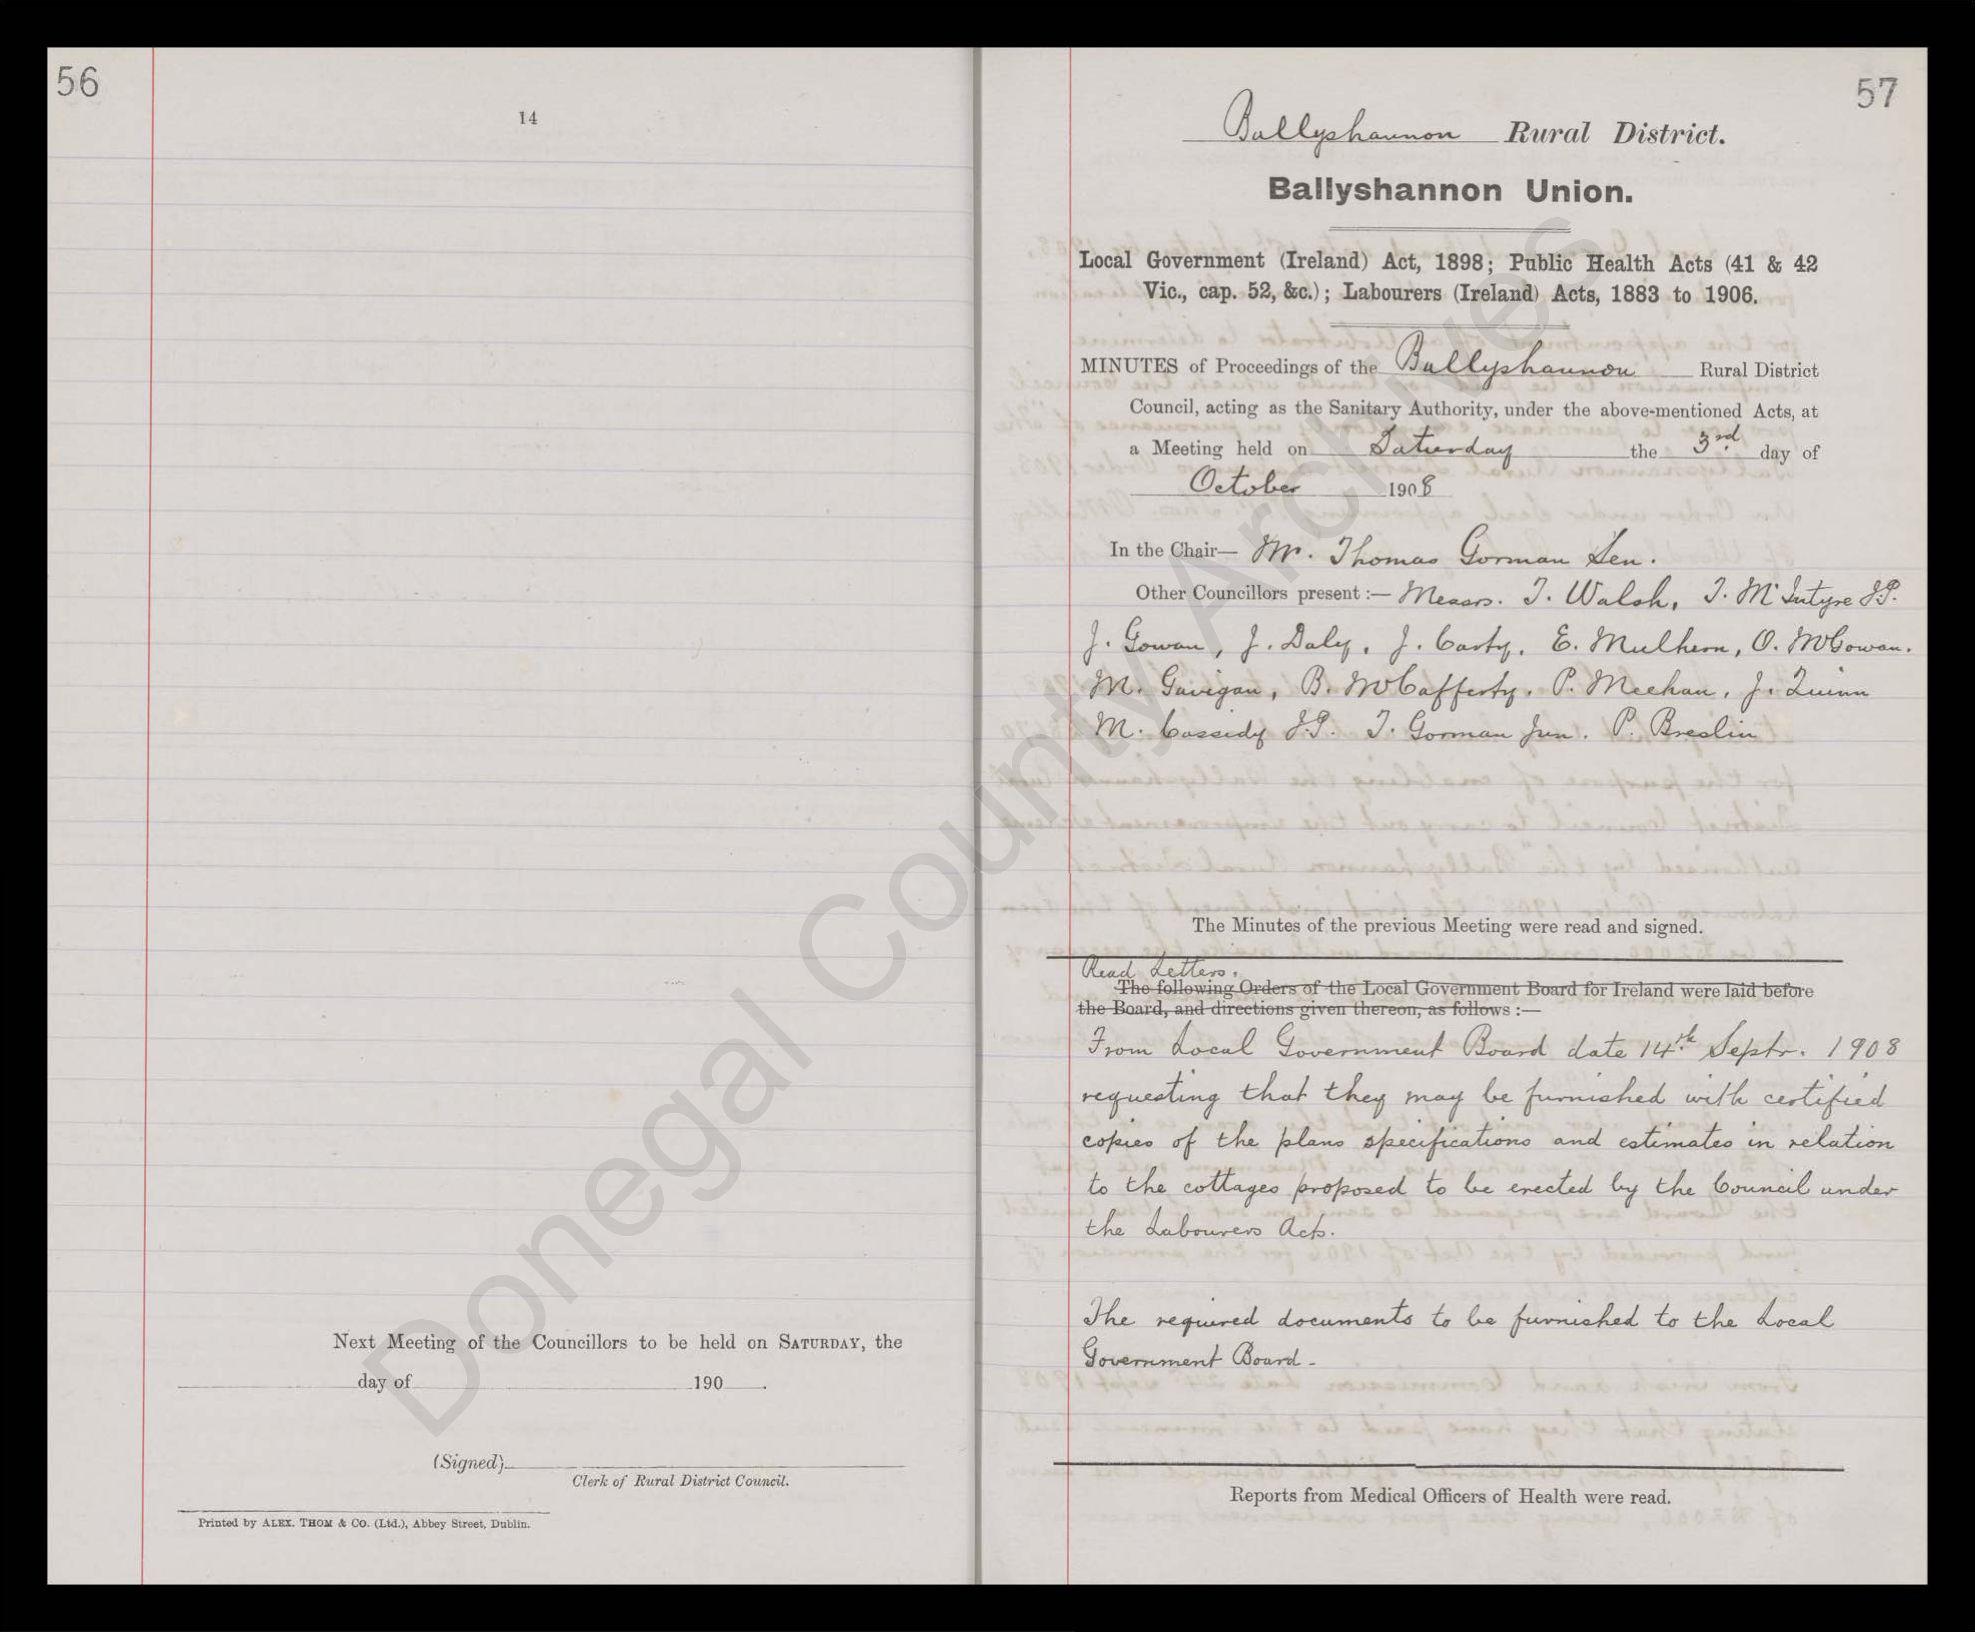 56
14
Next Meeting of the Councillors to be held on SATURDAY, the
day of 190 .
(Signed)
Clerk of Rural District Council.
Printed by ALEX. THOM & CO. (Ltd.), Abbey Street, Dublin.
57
Ballyshannon Rural District.
Ballyshannon Union.
Local Government (Ireland) Act, 1898; Public Health Acts (41 & 42
Vic., cap. 52, &c.); Labourers (Ireland) Acts, 1883 to 1906.
MINUTES of Proceedings of the Ballyshannon Rural District
Council, acting as the Sanitary Authority, under the above-mentioned Acts, at
a Meeting held on Saturday the 3rd day of
October 1908
In the Chair— Mr. Thomas Gorman Sen.
Other Councillors present :— Messrs. T. Walsh, T. McIntyre J.P.
J. Gowan, J. Daly, J. Carty, E. Mulhern, O. McGowan.
M. Gavigan, B. McCafferty, P. Meehan, J. Quinn
M. Cassidy J.P. T. Gorman Jun. P. Breslin
The Minutes of the previous Meeting were read and signed.
Read Letters.
The following Orders of the Local Government Board for Ireland were laid before
the Board, and directions given thereon, as follows :—
From Local Government Board date 14th Septr. 1908
requesting that they may be furnished with certified
copies of the plans specifications and estimates in relation
to the cottages proposed to be erected by the Council under
the Labourers Acts.
The required documents to be furnished to the Local
Government Board -
Reports from Medical Officers of Health were read.
Donegal County Archives